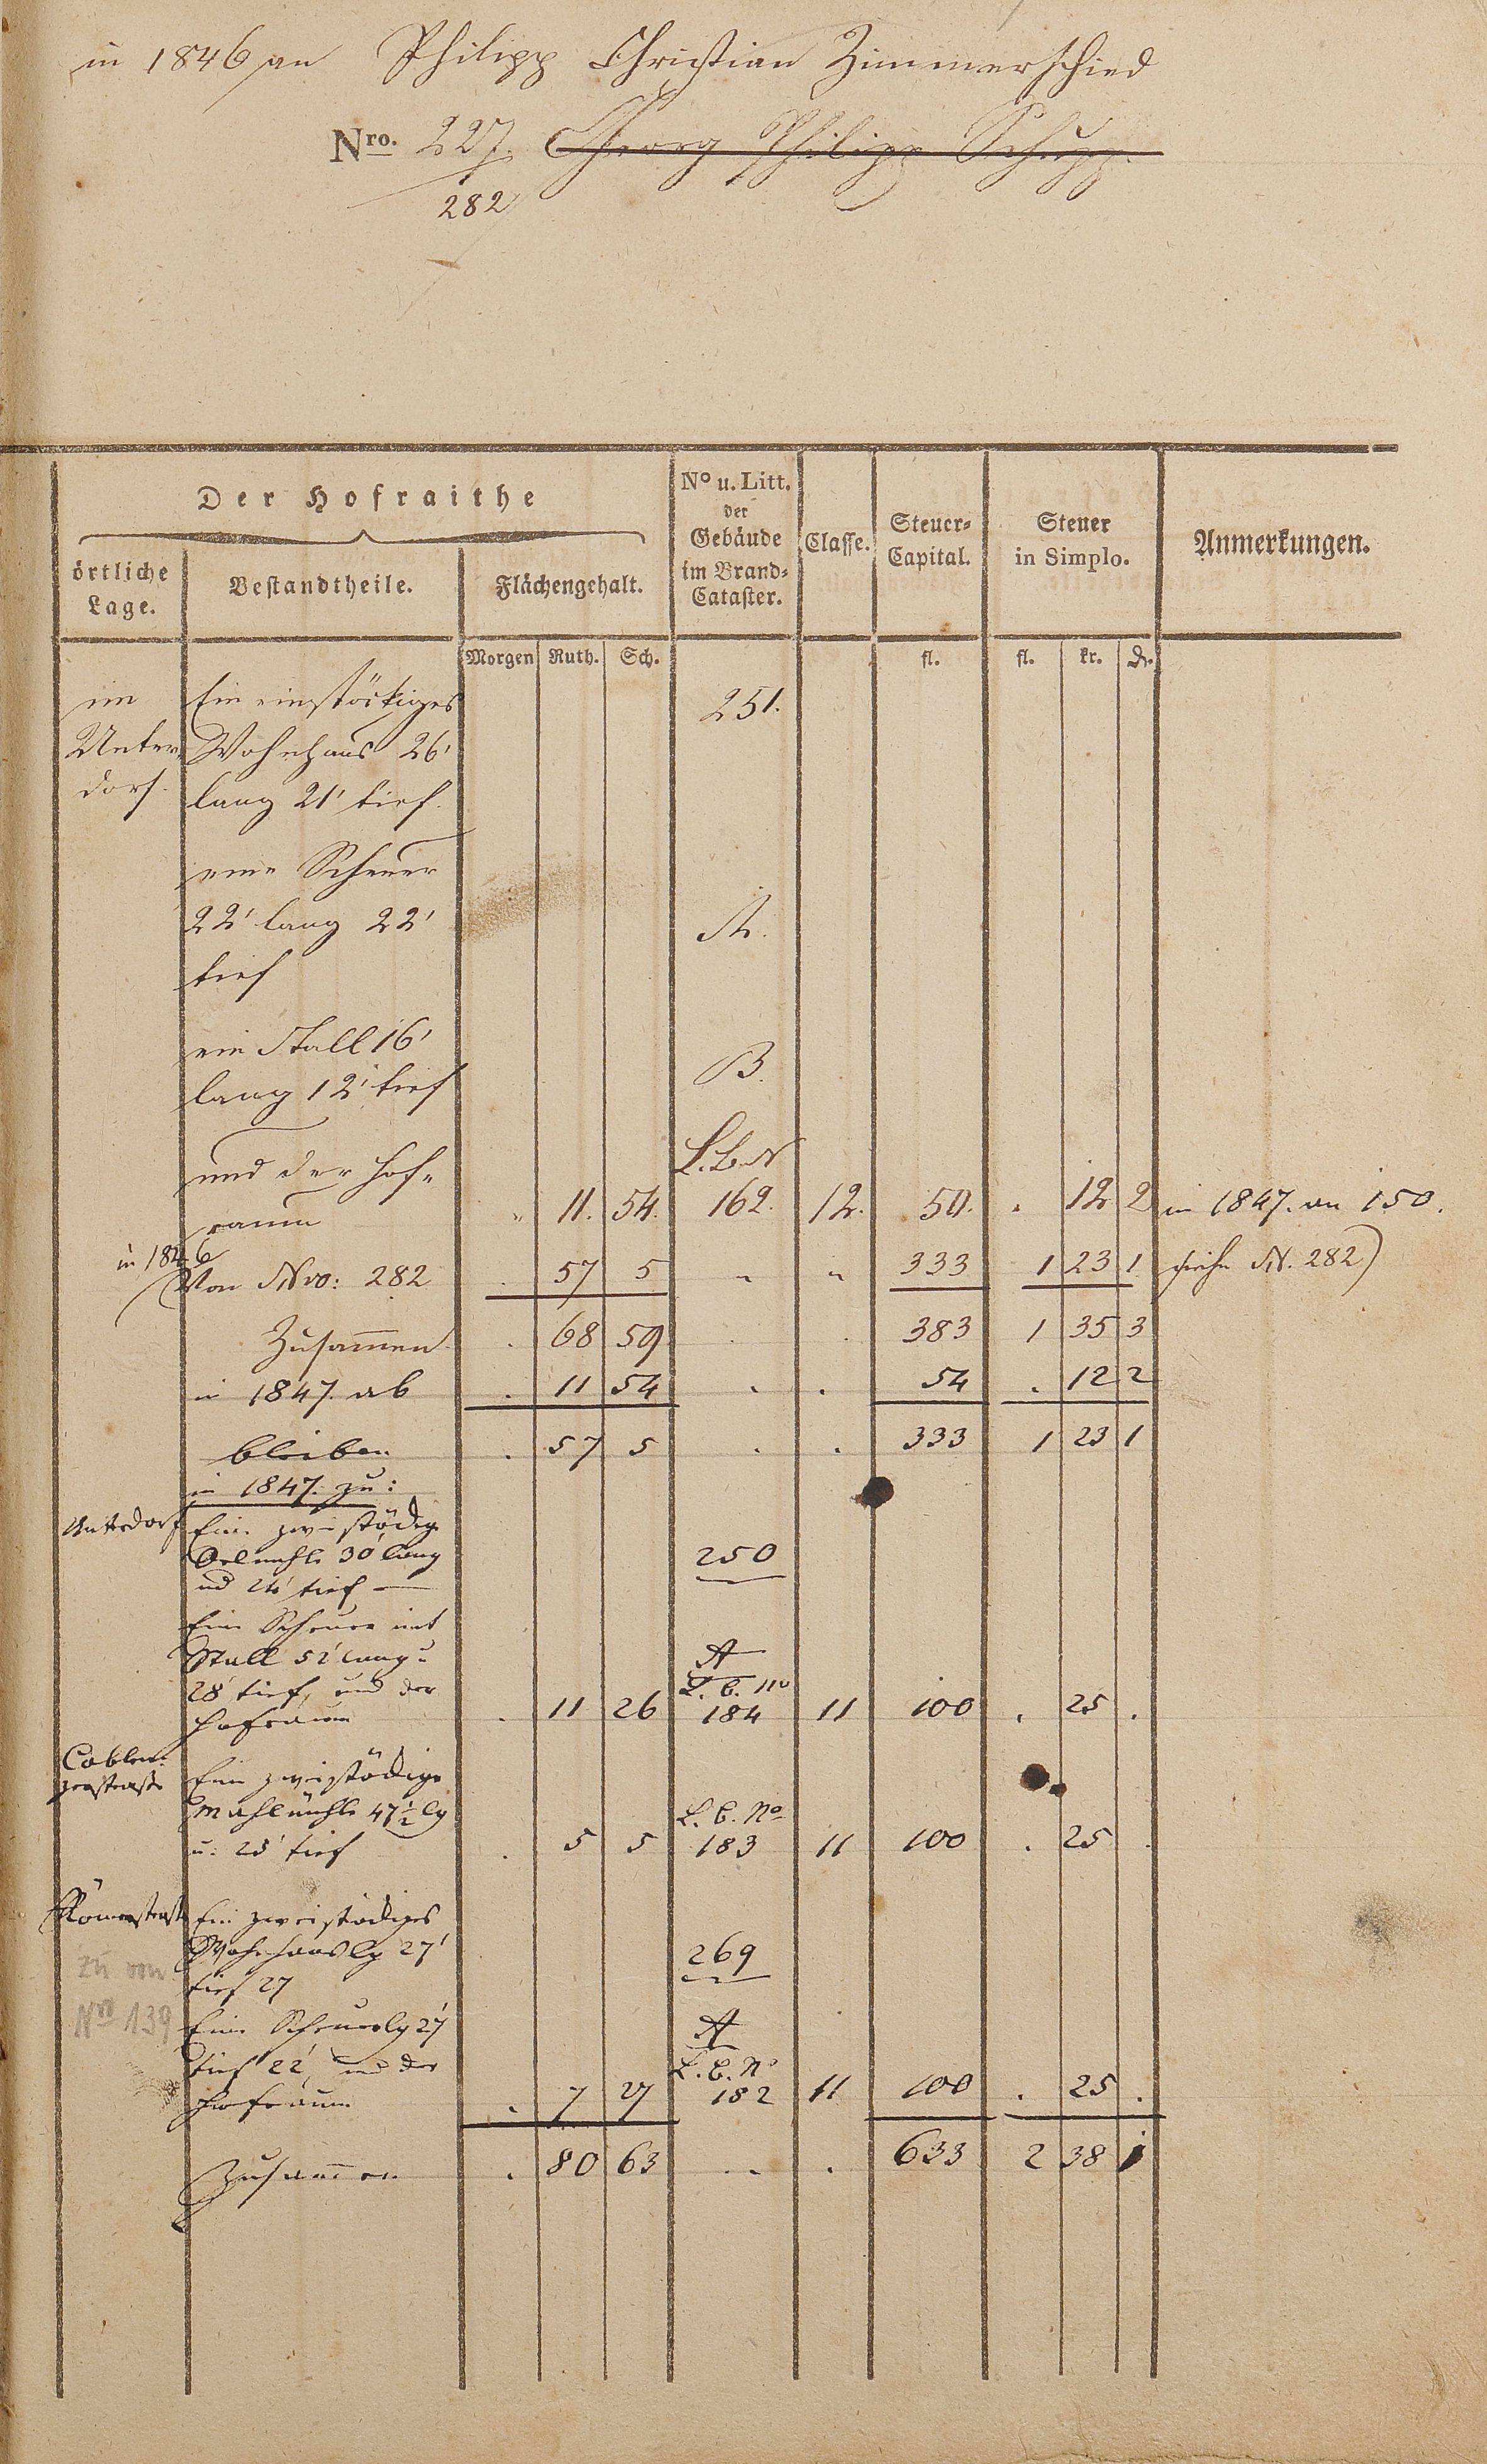 in 1846 an Philipp Christian Zimmerschied
Nro. 227. Georg Philipp Schupp.
282
Der Hofraithe
örtliche Lage.
Bestandtheile.
Flächengehalt.
No u. Litt. der Gebäude im Brand-Cataster.
Classe.
Steuer-Capital.
Steuer in Simplo.
Anmerkungen.
Morgen Ruth. Sch. fl. fl. kr. dr.
im Ein einstöckiges 251.
Unter- Wohnhaus 26'
dorf. lang 21' tief.
eine Scheuer
22' lang 22' A.
tief
ein Stall 16'
lang 12' tief B.
und der Hof- L.b.N
raum " 11. 54. 162. 12. 50. . 12 2 in 1847. an 150.
in 1846
Von Nro: 282 . 57 5 " " 333 1 23 1 siehe N. 282)
Zusammen . 68 59 . . 383 1 35 3
in 1847. ab . 11 54 . . 54 . 12 2
bleiben . 57 5 . . 333 1 23 1
in 1847. zu:
Unterdorf Eine zweistöckige
Oelmühle 30' lang 250
und 24' tief —
Eine Scheuer mit
Stall 52' lang u. A
28' tief, und der L. b. No
Hofraum . 11 26 184 11 100 . 25 .
Coblen-
zerstraße Eine zweistöckige
Mahlmühle 47½ lg L. b. No
u. 25' tief . 5 5 183 11 100 . 25 .
Römerstraße Ein zweistöckiges
Wohnhaus lg 27' 269
zu von tief 27
Nro 139 Eine Scheuer lg 27' A
tief 22', und der L. b. No
Hofraum . 7 27 182 11 100 . 25 .
Zusammen . 80 63 . . . 633 2 38 1